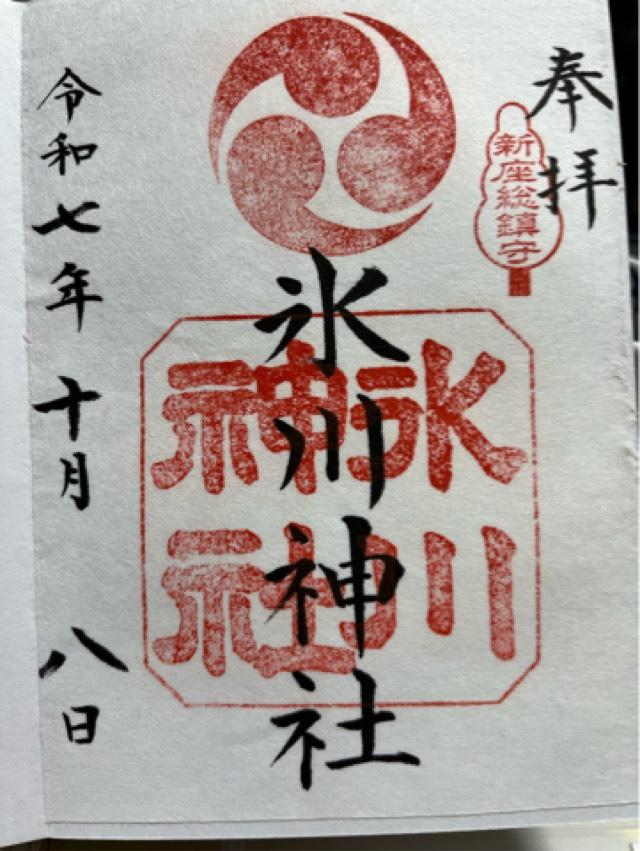 奉拝
新座総鎮守
氷川神社
氷川
神社
令和七年十月八日